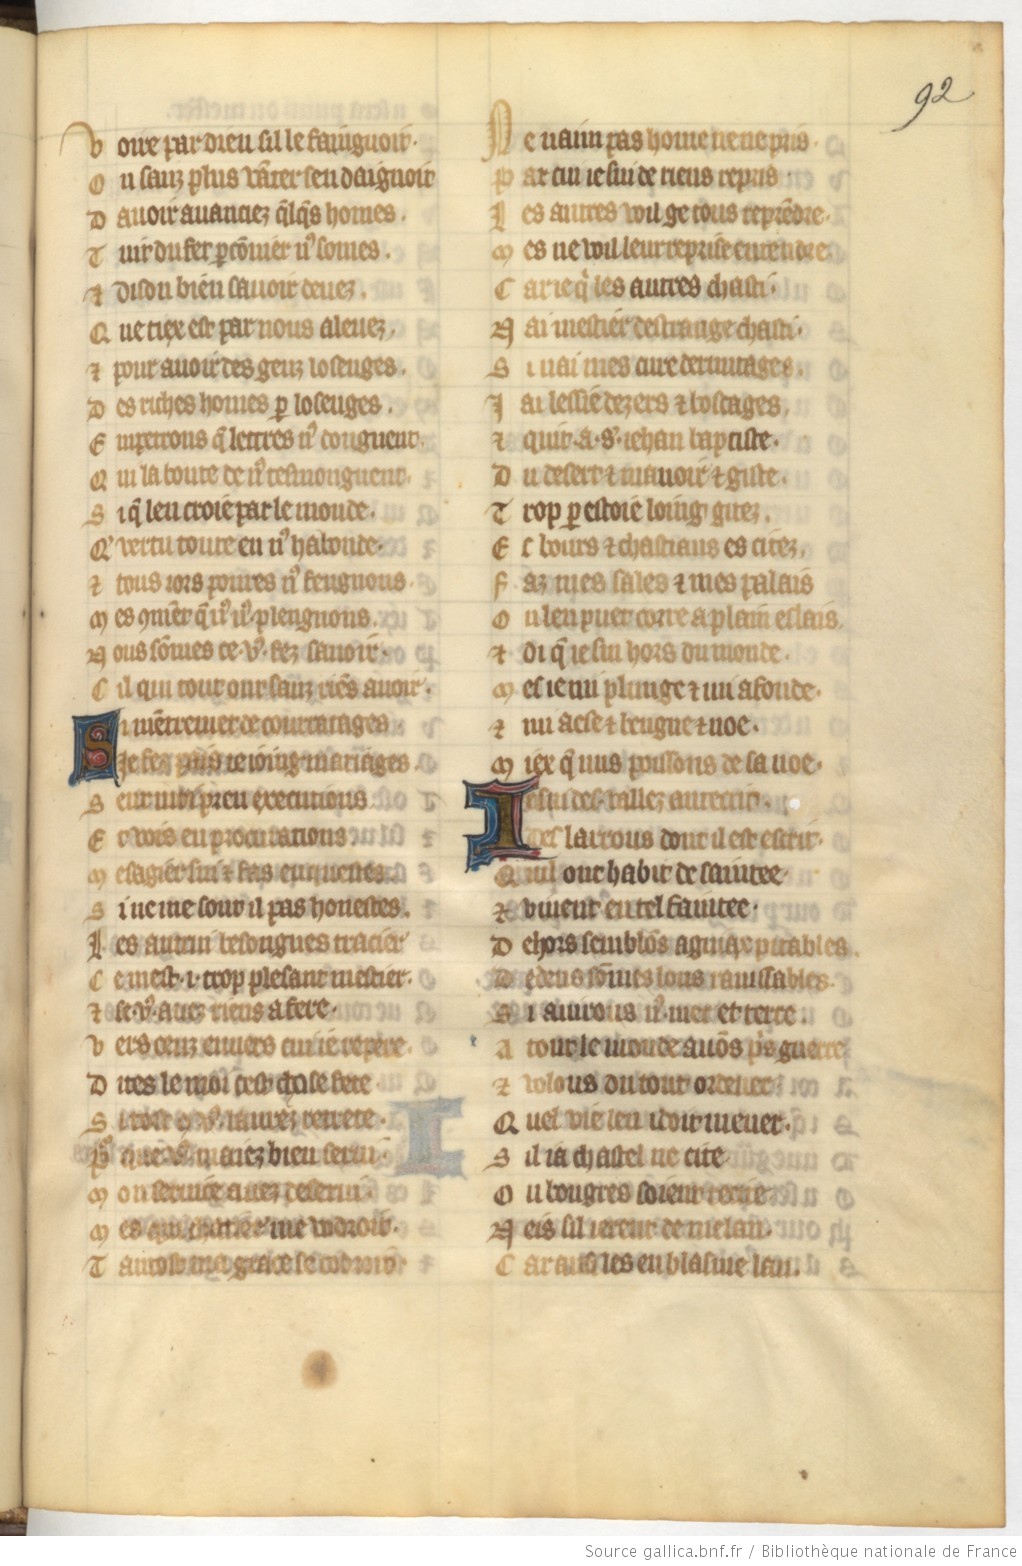 92
V oire par dieu sil le faingnoit.
O u sanz plus vãter sen daignoit
D avoir avanciez q̃lq̃s homes.
T uit du fet parcõnier nꝰ somes.
⁊ disdu bien savoir devez.
Q ue tiex est par nous alevez.
⁊ pour avoir des genz losenges.
D es riches homes ꝑ losenges.
E mpetrons q̃ lettres nꝰ dongnent.
Q ui la bonte de nꝰ tesmongnent.
S i q̃ len croie par le monde.
Q' vertu toute en nꝰ habonde.
⁊ tous iors povres nꝰ feignons.
M es ꝯmẽt q̃ nꝰ nꝰ plengnons.
N ous sõmes ce vꝰ fez savoir.
C il qui tout ont sanz riẽs avoir.
S i mẽtremet de courratages
Je fez pais ie ioing mariages
S eur moi preu execucions
E t vois en procurations.
M esagier sui ⁊ fais enquestes.
S i ne me sont il pas honestes.
L es autrui besongnes traitier
C e mest .i. trop plesant mestier.
⁊ se vꝰ avez riens a fere.
V ers ceuz envers cui ie repere.
D ites le moi cest chose fete
S i tost q̃ vꝰ lavrez retrete
P̃ q̃ vꝰ maiez bien servi.
M on service avez deservi.
M es qui chatier me vodroit.
T antost ma grace se todroit
N e naim pas home ne ne pris.
P ar cui ie sui de riens repris.
L es autres voil ge tous reprẽdre.
M es ne voil leur reprise entendre.
C ar ie q̃ les autres chasti.
N ai mestier destrange chasti.
S i nai mes cure dermitages.
J ai lessié dezers ⁊ boscages.
⁊ quit a s. iehan baptiste.
D u desert ⁊ manoir ⁊ giste.
T rop ꝑ estoie loing gitez.
E s bours ⁊ chastiaus es citez.
F az mes sales ⁊ mes palais
O u len puet corre a plain eslais.
⁊ di q̃ ie sui hors du monde.
M es ie mi plunge ⁊ mi afonde.
⁊ mi aese ⁊ beugne ⁊ noe.
M iex q̃ nus poissons de sa noe.
J e sui des vallez antecrit.
des larrons dont il est escrit.
Q uil ont habit de saintee
⁊ vivent en tel faintee.
D ehors semblõs agniax pitables.
D edens sõmes lous ravissables.
S i avirons nꝰ mer et terre.
A tout le monde avõs pris guerre
⁊ volons du tout ordener
Q uel vie len i doit mener.
S il i a chastel ne cité
O u bougres soient recité
N eis sil ierent de melan.
C ar aussi les en blasme lan.
Source gallica.bnf.fr / Bibliothèque nationale de France